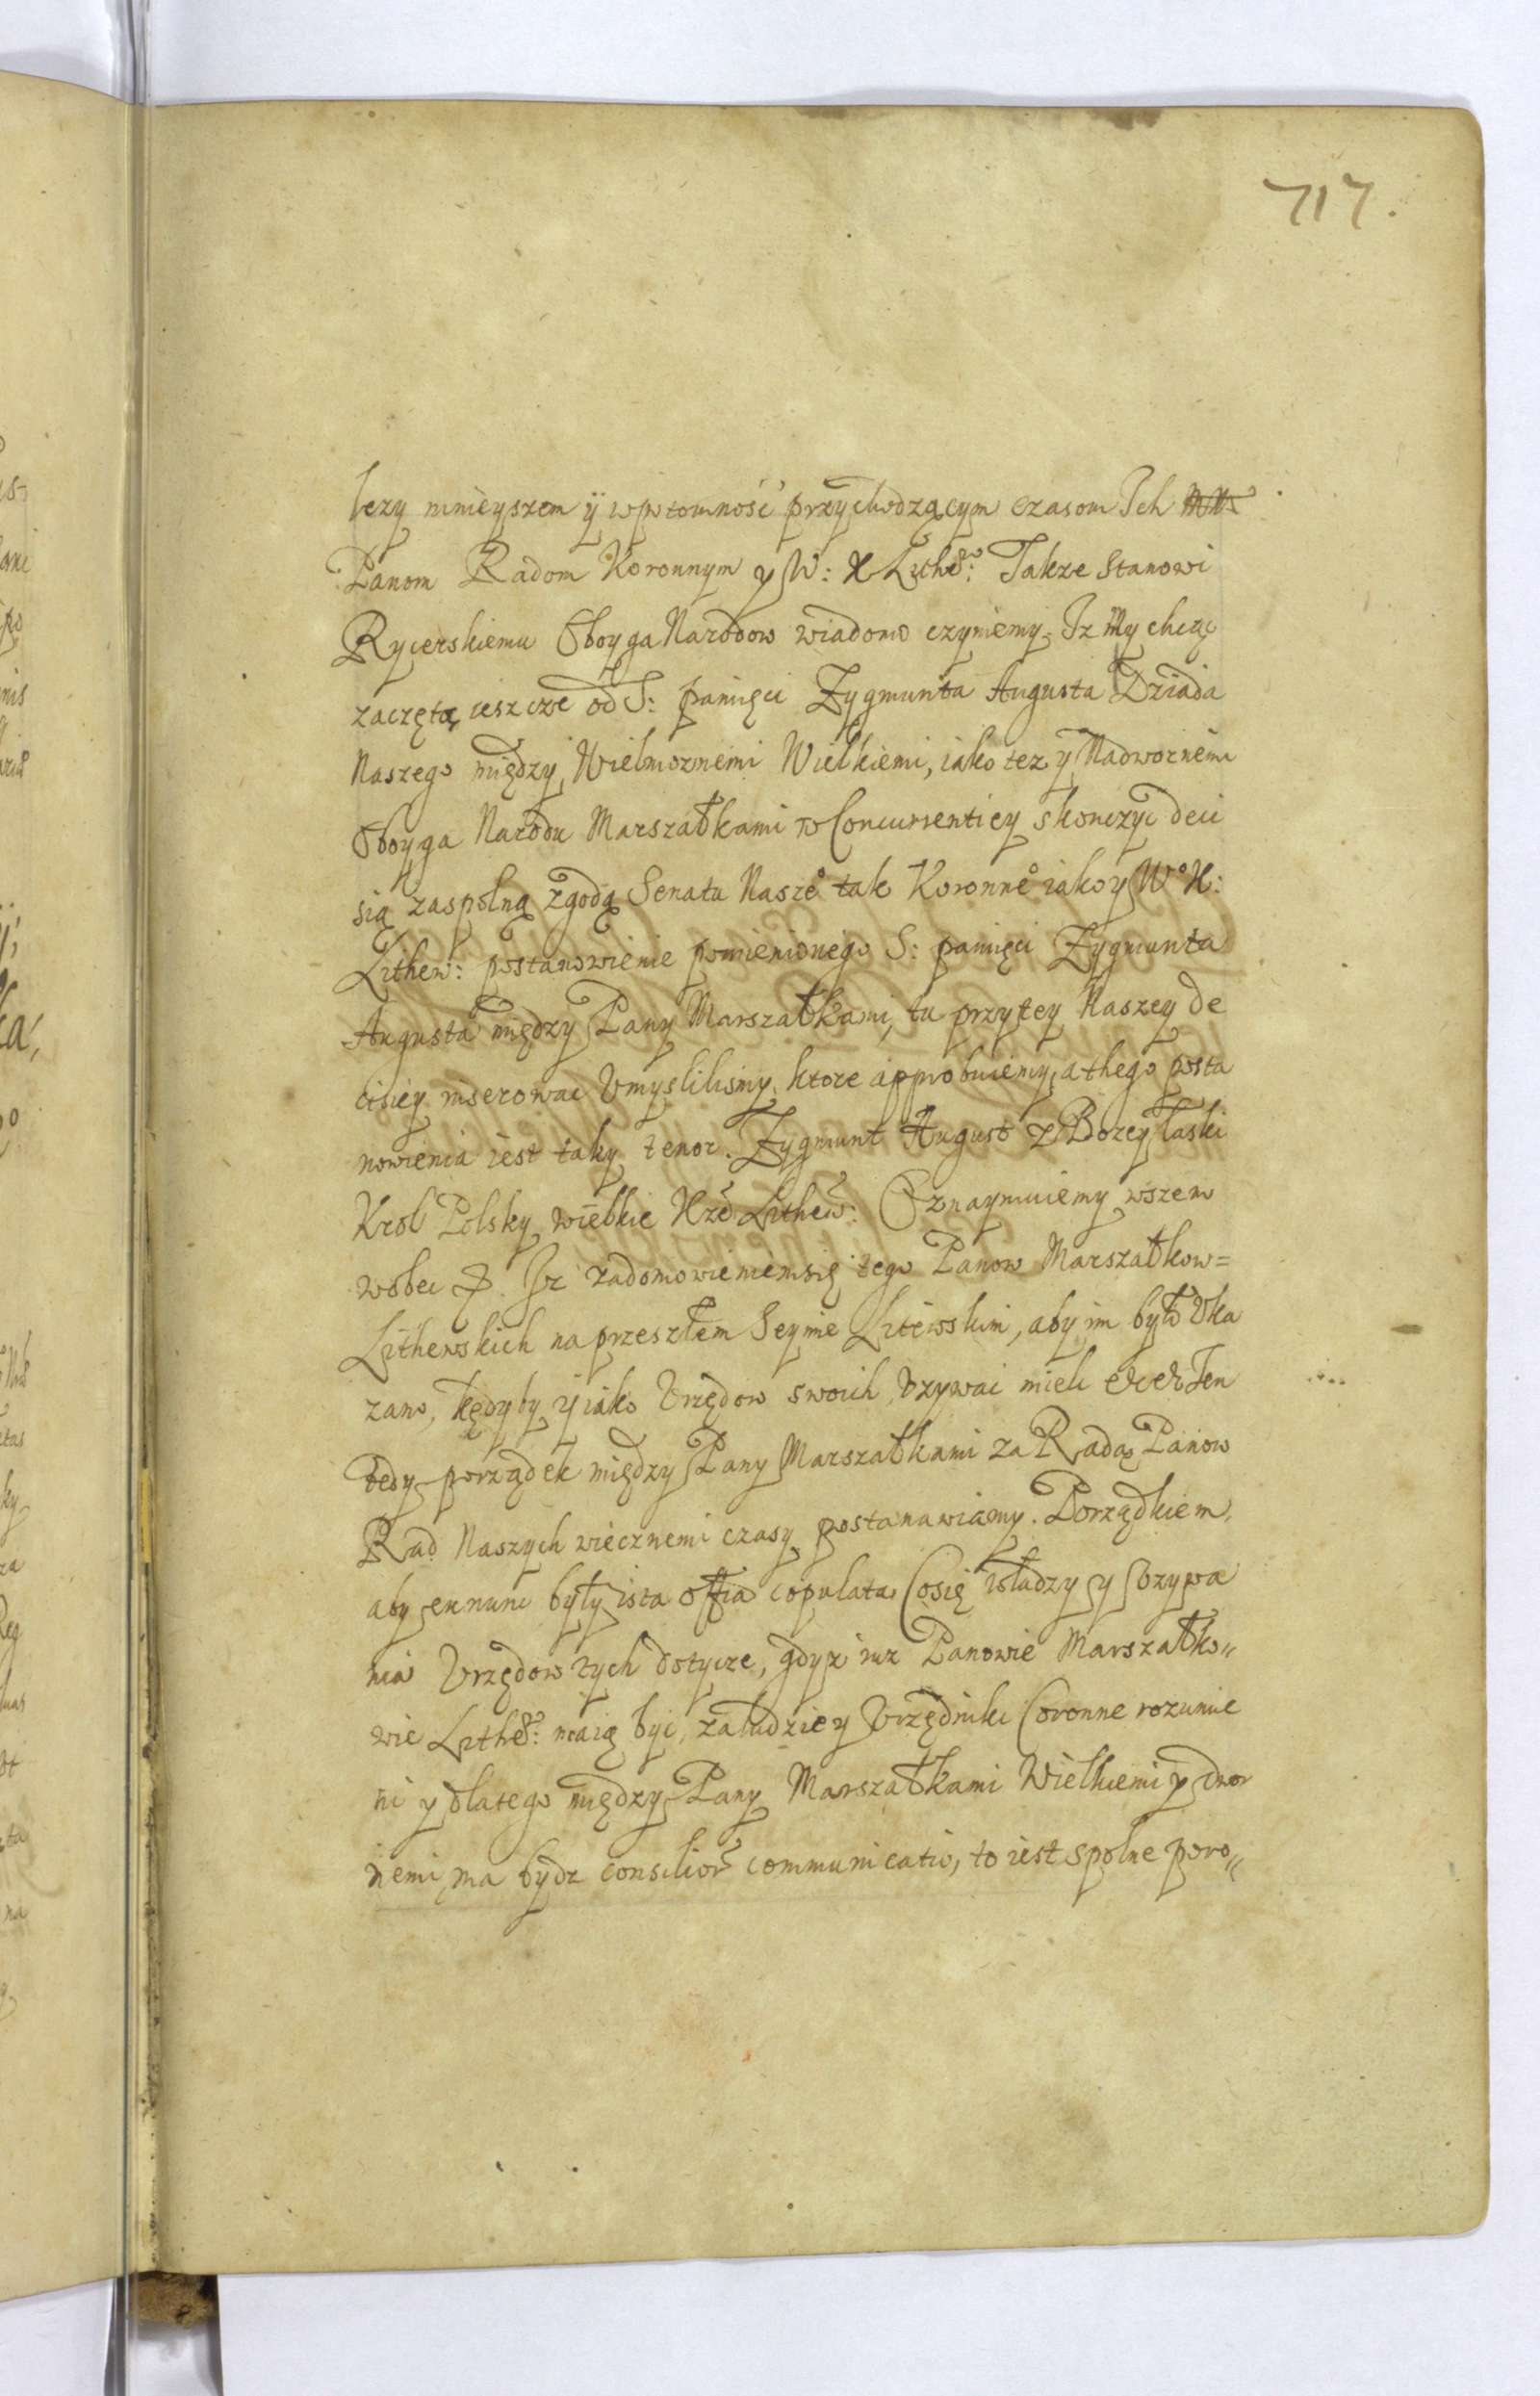 717.
lezy ninieyszem ÿ wpotomność przychodzącym czasom Ich
Panom Radom Koronnym y W: X Lithe: Takze Stanowi
Rycerskiemu Oboyga Narodow wiadomo czyniemy, Iz My chcąc
zaczętą ieszcze od S: pamięci Zygmunta Augusta Dziada
Naszego między Wielmoznemi Wielkiemi, iako tez y Nadwornemi
Oboyga Narodu Marszałkami w Concurrentiey skonczyc deci
sią zaspolną zgodą Senatu Nasze° tak Koronne° iako y W° X:
Lithew: postanowienie pomienionego S: pamięci Zygmunta
Augusta między Pany Marszałkami, tu przy tey Naszey de
cisiey inserowac Vmyslilismy, ktore approbuiemy, a thego posta
nowienia iest taky tenor. Zygmunt August z Bozey łaski
Krol Polsky, wielkie Xże Lithew: Oznaymuiemy wszem
wobec Iz zadomowieniemsię tego Panow Marszałkow=
Lithewskich na przeszłem Seymie Litewskim, aby im było Vka
zano, kędyby y iako Vrzędow swoich Vzywac mieli Ten
tedy porządek między Pany Marszałkami za Radą Panow
Rad Naszych wiecznemi czasy postanawiamy. Porządkiem,
aby ex nunc były ista offia copulata, Cosię władzy y Vzywa
nia Vrzędow tych dotycze, gdyz iuz Panowie Marszałko„
wie Lithe: maią byc, za ludzie y Vrzędniki Coronne rozumie
ni y dlatego między Pany Marszałkami Wielkiemi y dwor
nemi ma bydz consilior communicatio, to iest spolne poro„